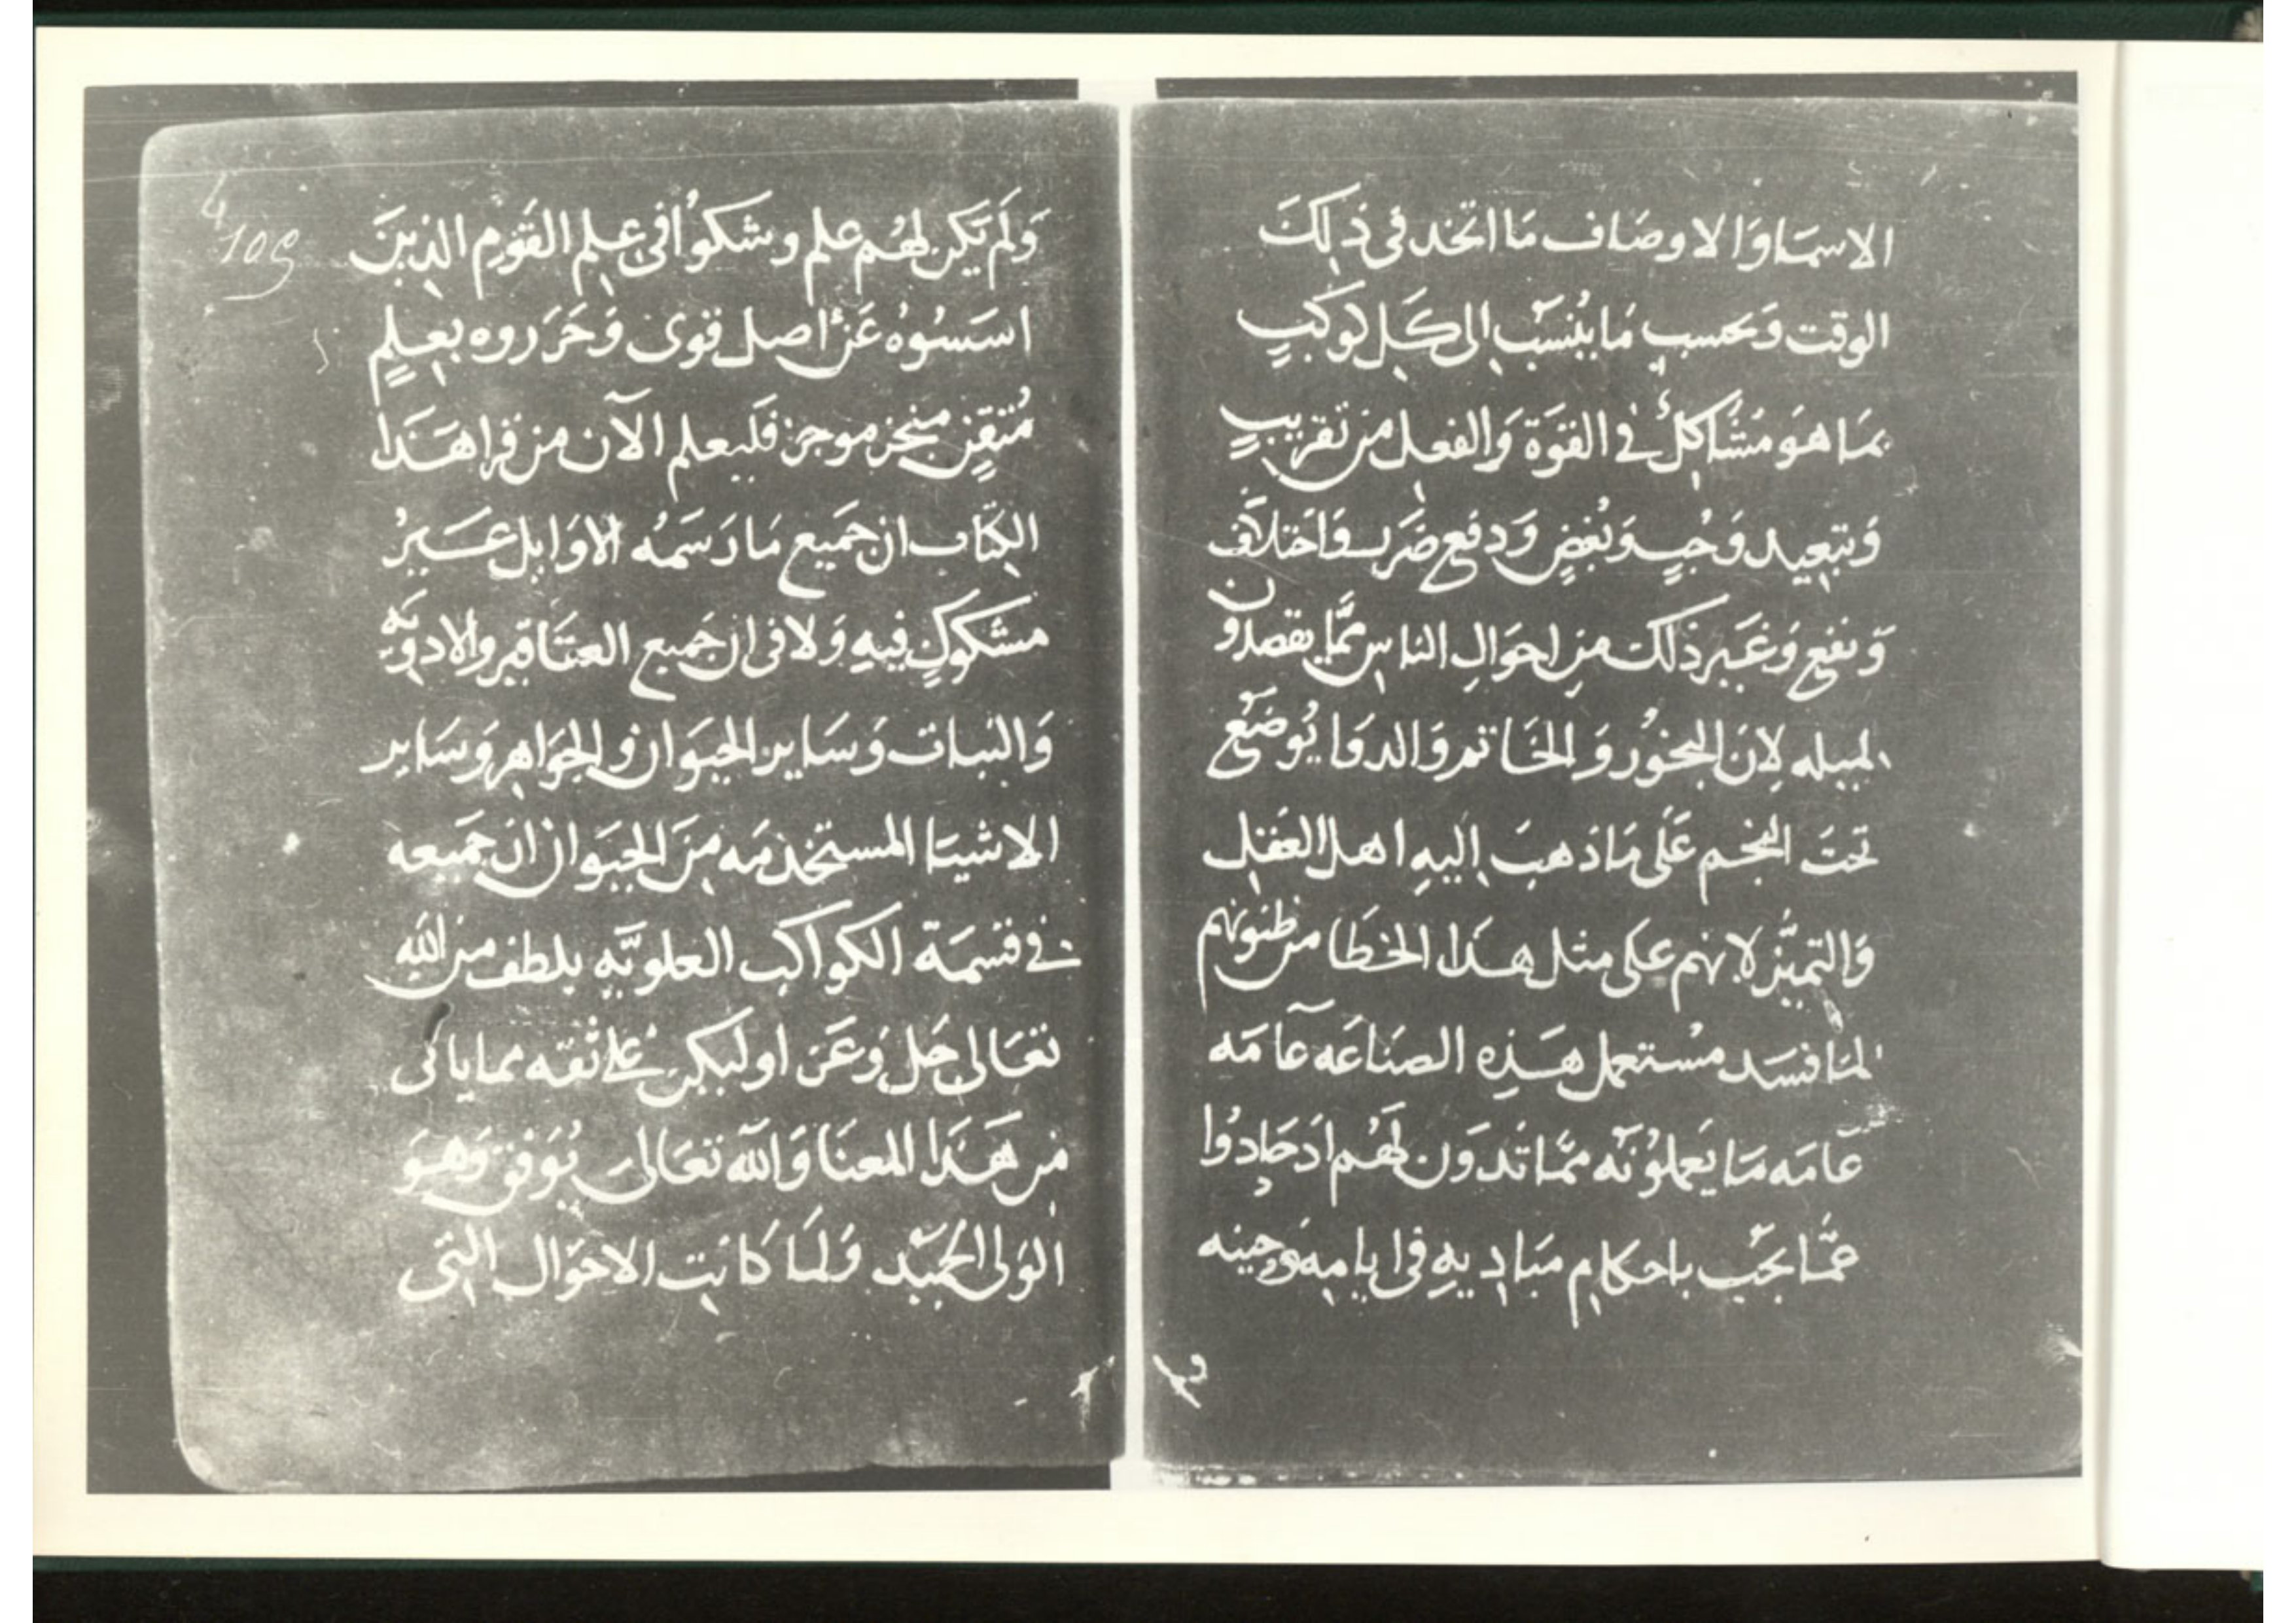 الاسما والاوصاف ما اتخد فى ذلك
الوقت وبحسب ما ينسب الى كل كوكب
بما هو مشاكل فى القوة والفعل من تقريب
وتبعيد وحب وبغض ودفع ضر واختلاف
ونفع وغير ذلك من احوال الناس مما يقصدون
لان البخور والخاتم والدوا يوضع
تحت النجم على ما ذهب اليه اهل العقل
والتميز لانهم على مثل هذا الخطا من ظنونهم
لما فسد مستعمل هذه الصناعه عامه
عامه ما يعملونه مما لهم اد حادوا
عما يجب باحكام مباديه فى ايامه وحينه
109
ولم يكن لهم علم وشكوا فى علم القوم الذين
اسسوه عن اصل قوى وحرروه بعلم
متقن منجز موجز فليعلم الآن من قرا هذا
الكتاب ان جميع ما رسمه الاوايل غير
مشكوك فيه ولا فى ان جميع العقاقير والادويه
والنبات وساير الحيوان والجواهر وساير
الاشيا المستخدمه من الحيوان ان جميعه
فى قسمة الكواكب العلويه بلطف من الله
تعالى جل وعز وليكن على ثقه مما ياتى
من هذا المعنا والله تعالى يوفق وهو
الولى الحميد ولما كانت الاحوال التى